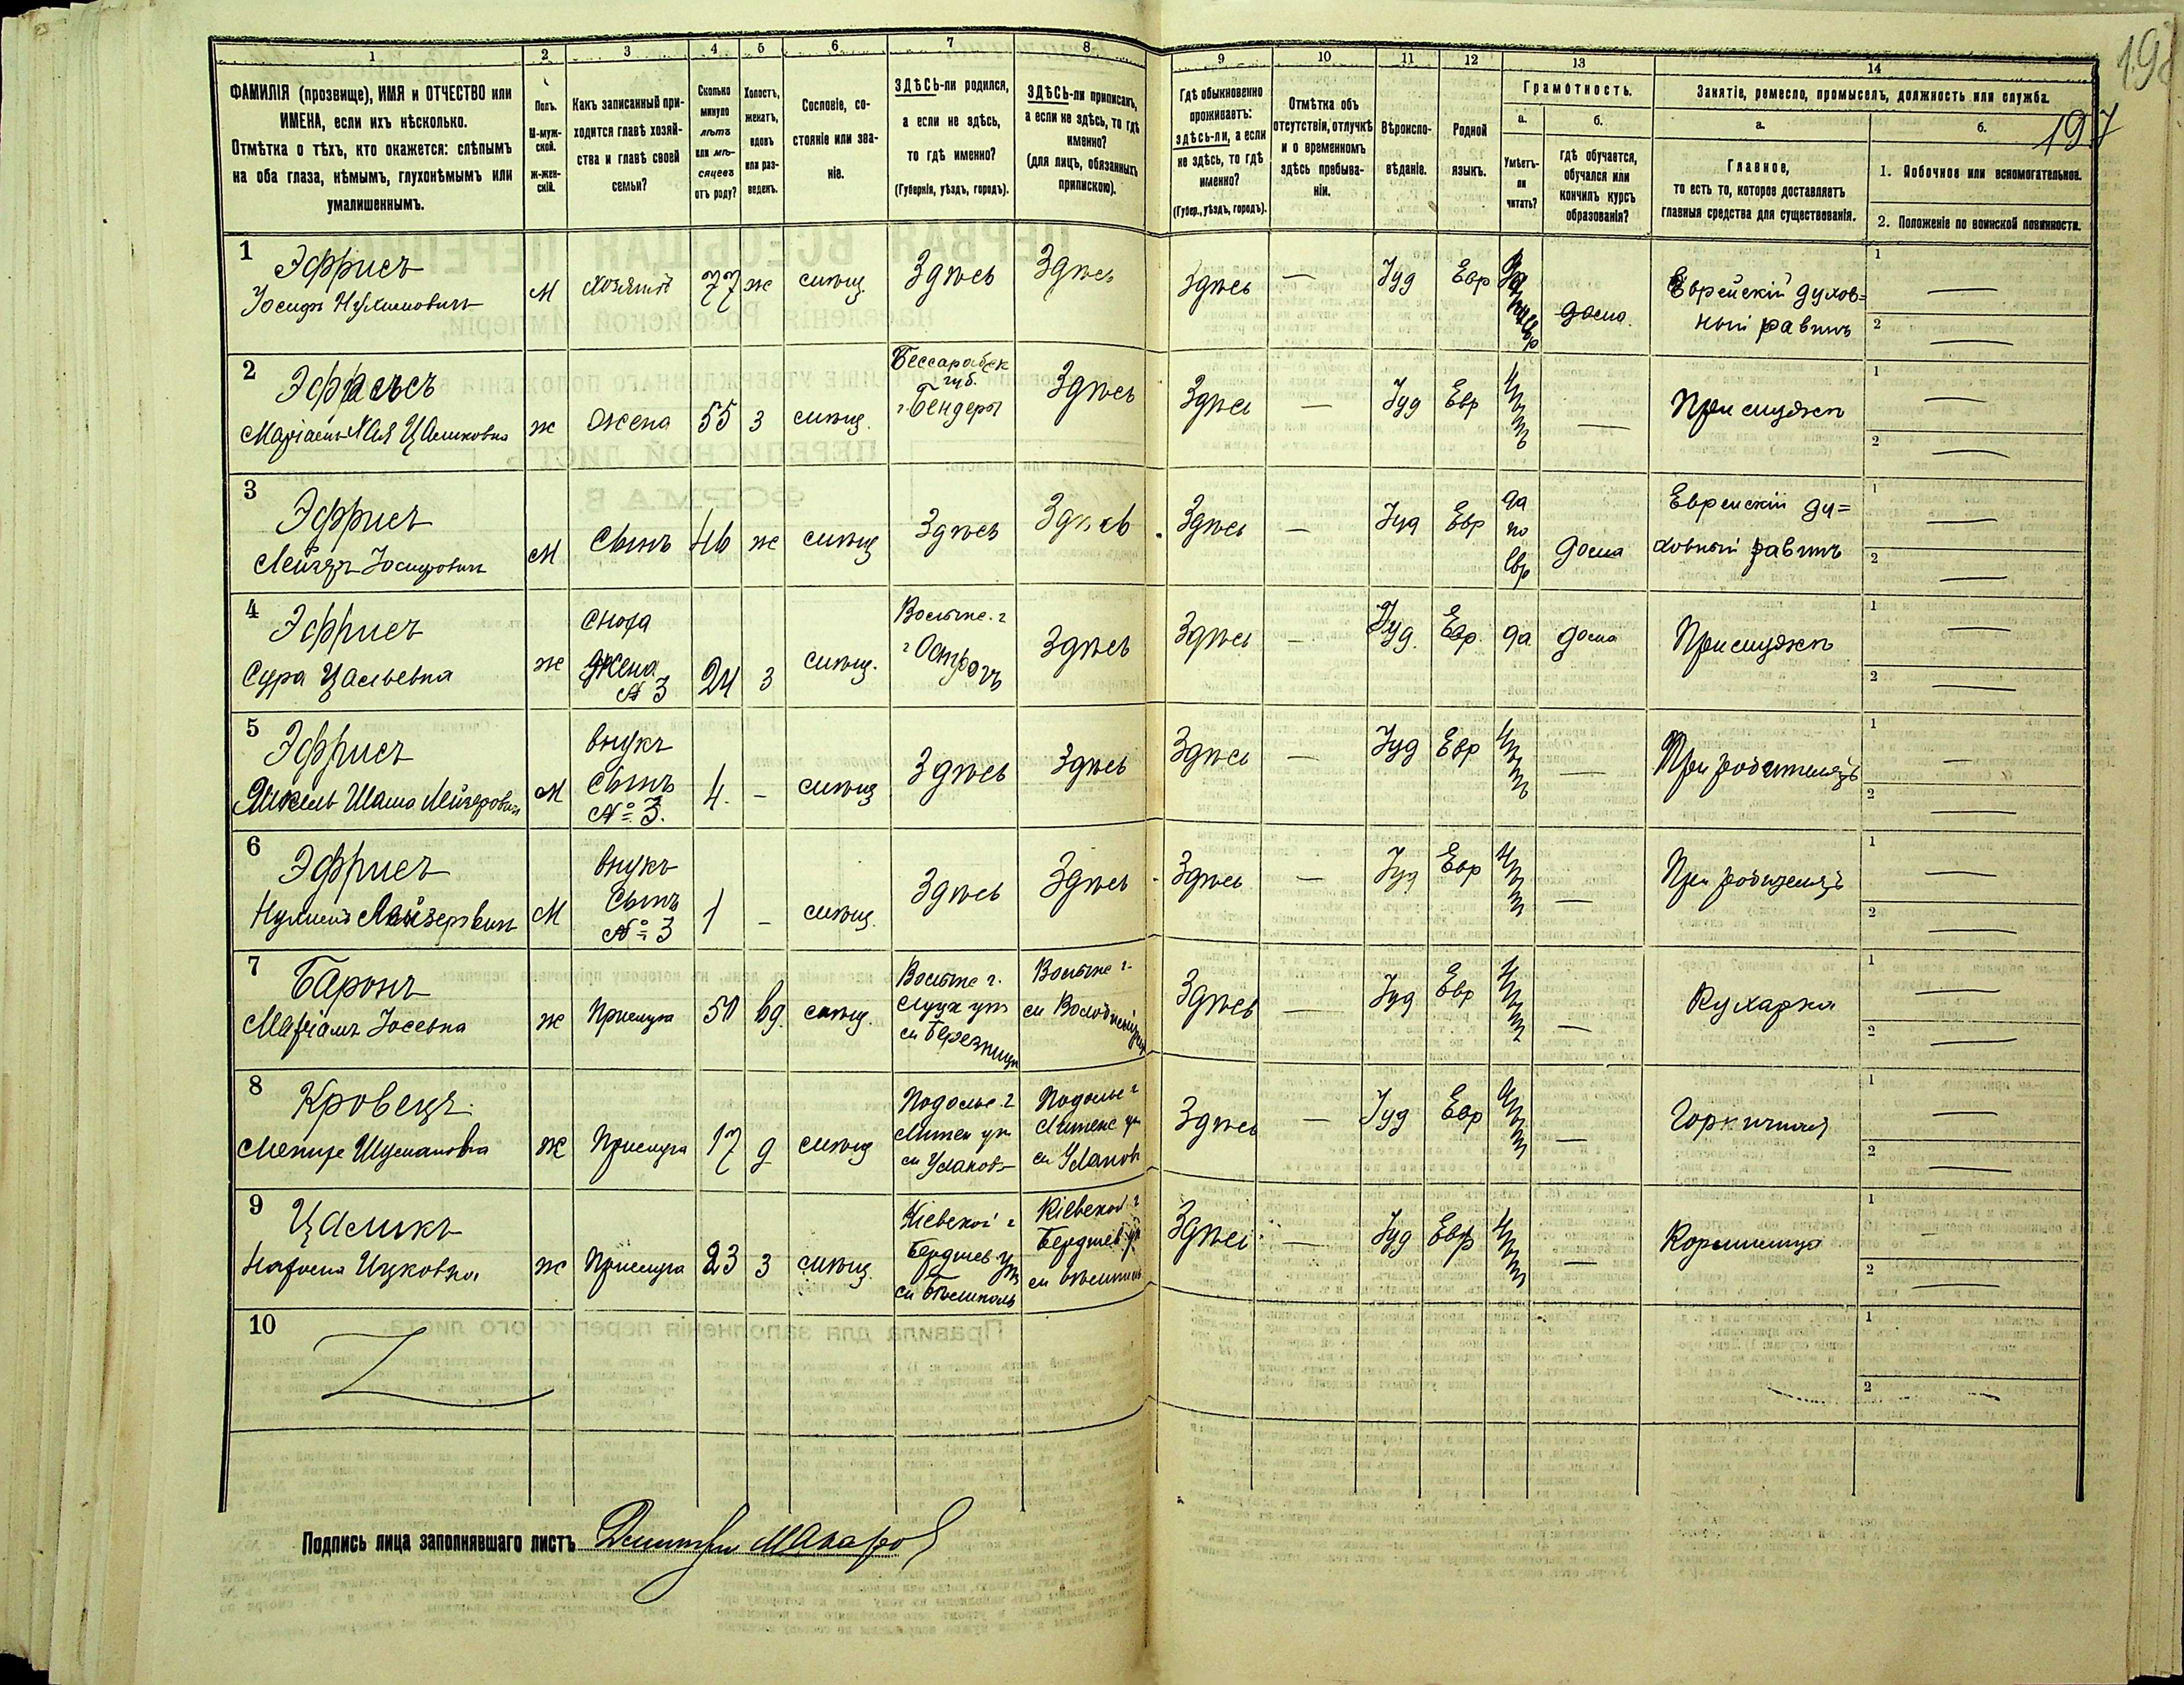 198
197
1
2
3
4
5
6
7
8
9
10
11
12
13
14
ФАМИЛІЯ (прозвище), ИМЯ и ОТЧЕСТВО или
ИМЕНА, если ихъ нѣсколько.
Отмѣтка о тѣхъ, кто окажется: слѣпымъ
на оба глаза, нѣмымъ, глухонѣмымъ или
умалишеннымъ.
Полъ.
М-муж-
ской.
Ж-жен-
скій.
Какъ записанный при-
ходится главѣ хозяй-
ства и главѣ своей
семьи?
Сколько
минуло
лѣтъ
или мѣ-
сяцевъ
отъ роду?
Холостъ,
женатъ,
вдовъ
или раз-
веденъ.
Сословіе, со-
стояніе или зва-
ніе.
ЗДѢСЬ-ли родился,
а если не здѣсь,
то гдѣ именно?
(Губернія, уѣздъ, городъ).
ЗДѢСЬ-ли приписанъ,
а если не здѣсь, то гдѣ
именно?
(для лицъ, обязанныхъ
припискою).
Гдѣ обыкновенно
проживаетъ:
здѣсь-ли, а если
не здѣсь, то гдѣ
именно?
(Губер., уѣздъ, городъ).
Отмѣтка объ
отсутствіи, отлучкѣ
и о временномъ
здѣсь пребыва-
ніи.
Вѣроиспо-
вѣданіе.
Родной
языкъ.
Грамотность.
а.
Умѣетъ-
ли
читать?
б.
гдѣ обучается,
обучался или
кончилъ курсъ
образованія?
Занятіе, ремесло, промыселъ, должность или служба.
а.
Главное,
то есть то, которое доставляетъ
главныя средства для существованія.
б.
1. Побочное или вспомогательное.
2. Положеніе по воинской повинности.
1
Эфрисъ
Іосифъ Нухимовичъ
М хозяинъ 77 ж мѣщ. Здѣсь Здѣсь Здѣсь — Іуд Евр дома.
Еврейскій духов=
ный равинъ
1
2
2
Эфрисъ
ж жена 55 з мѣщ.
Бессарабск
губ.
г. Бендеры
Здѣсь Здѣсь — Іуд Евр нѣтъ — При мужѣ
1
2
3
Эфрисъ
Лейзеръ Іосифовичъ
М Сынъ 46 ж мѣщ Здѣсь Здѣсь Здѣсь — Іуд Евр
да
по
евр
дома
Еврейскій ду=
ховный равинъ
1
2
4
Эфрисъ
Сура
ж
сноха
жена
№ 3
24 з мѣщ.
Волынс. г
г Острогъ
Здѣсь Здѣсь — Іуд. Евр. да дома При мужѣ
1
2
5
Эфрисъ
Шама Лейзеровичъ
М
внукъ
сынъ
№ 3.
4. - мѣщ Здѣсь Здѣсь Здѣсь — Іуд Евр нѣтъ — При родителяхъ
1
2
6
Эфрисъ
Нухимъ Лейзеровичъ
М
внукъ
сынъ
№ 3
1 - мѣщ. Здѣсь Здѣсь Здѣсь — Іуд Евр нѣтъ — При родителяхъ
1
2
7
Баронъ
Маріамъ Іосевна
ж Прислуга 50 вд. мѣщ.
Волынс г.
Луцк уѣз
м Березницы
Волынс г.
Здѣсь — Іуд Евр нѣтъ — Кухарка
1
2
8
Кровецъ
Шулимовна
ж Прислуга 17 д мѣщ
Подольс. г
Литин уѣз
м Улановъ
Подольс г
Литинс уѣз
м Улановъ
Здѣсь — Іуд Евр нѣтъ — Горничная
1
2
9
Цаликъ
Ицковна
ж Прислуга 23 з мѣщ.
Кіевской г
Бердичев уѣз
м Бѣлиполь
Кіевской г
Бердичев уѣз
Здѣсь — Іуд Евр нѣтъ — Кормилица
1
2
10
1
2
Подпись лица заполнявшаго листъ Дмитрій Макаровъ